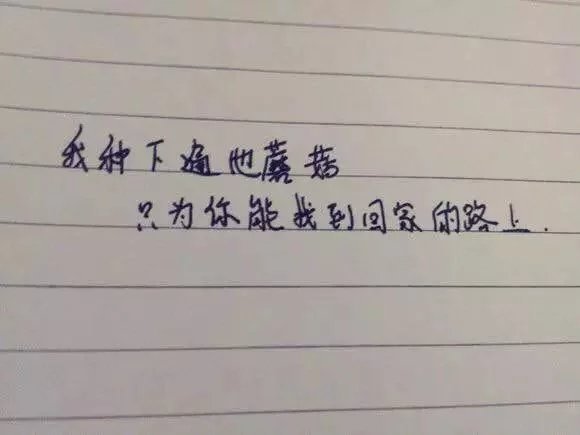 我种下遍地蘑菇
只为你能找到回家的路上.